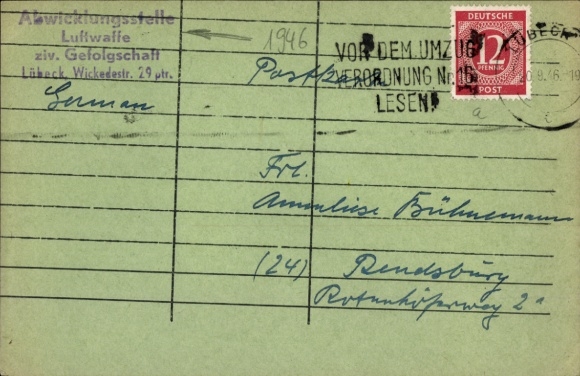 Abwicklungsstelle
Luftwaffe
ziv. Gefolgschaft
Lübeck, Wickedestr. 29 ptr.
1946
German
Postkarte
VOR DEM UMZUG
VERORDNUNG Nr. 16
LESEN!
DEUTSCHE
12
PFENNIG
POST
LÜBECK
.8.46.-19
a
Frl.
Annenliese Bühnemann
(24) Rendsburg
Rotenhöferweg 2a